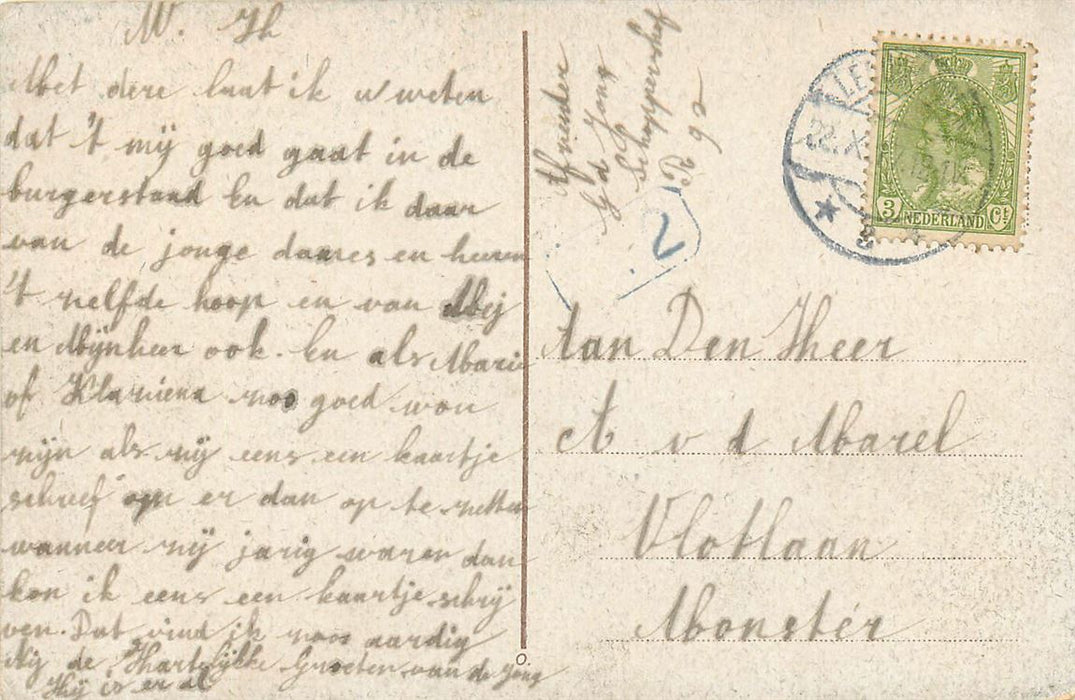 W. Hh
Met deze laat ik u weten
dat 't mij goed gaat in de
burgerstand En dat ik daar
van de jonge dames en heeren
't zelfde hoop en van Mej
en Mijnheer ook. En als Marie
of Klaziena zoo goed wou
zijn als zij eens een kaartje
schreef om er dan op te zetten
wanneer zij jarig waren dan
kon ik eens een kaartje schrij
ven. Dat vind ik zoo aardig
Zij de Hartelijke Groeten van de Jong
Hij is er al
Afzender
G d Jong
Schoppershof
R 92
2
NEDERLAND
3 Ct
Aan Den Heer
A v d Marel
Vlotlaan
Monster
O.